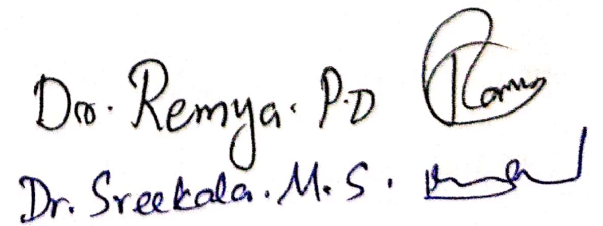 Dr. Remya. P.D
Dr. Sreekala. M. S.